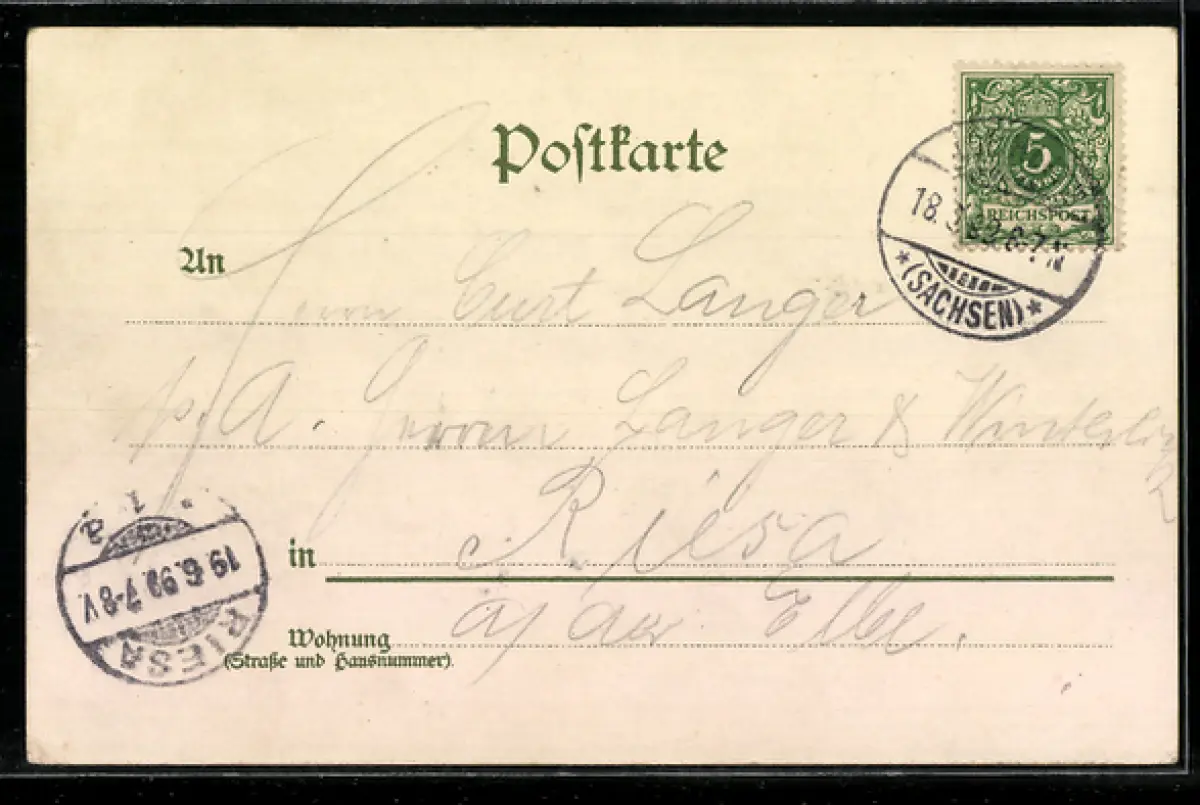 Postkarte
5
REICHSPOST
18. 6-7 N
*(SACHSEN)*
An Herrn Curt Langer
p. A. Herren Langer & Winterlich
in Riesa
a/ der Elbe.
Wohnung
(Straße und Hausnummer).
RIESA
19.6.99.7-8V.
* 1 a.